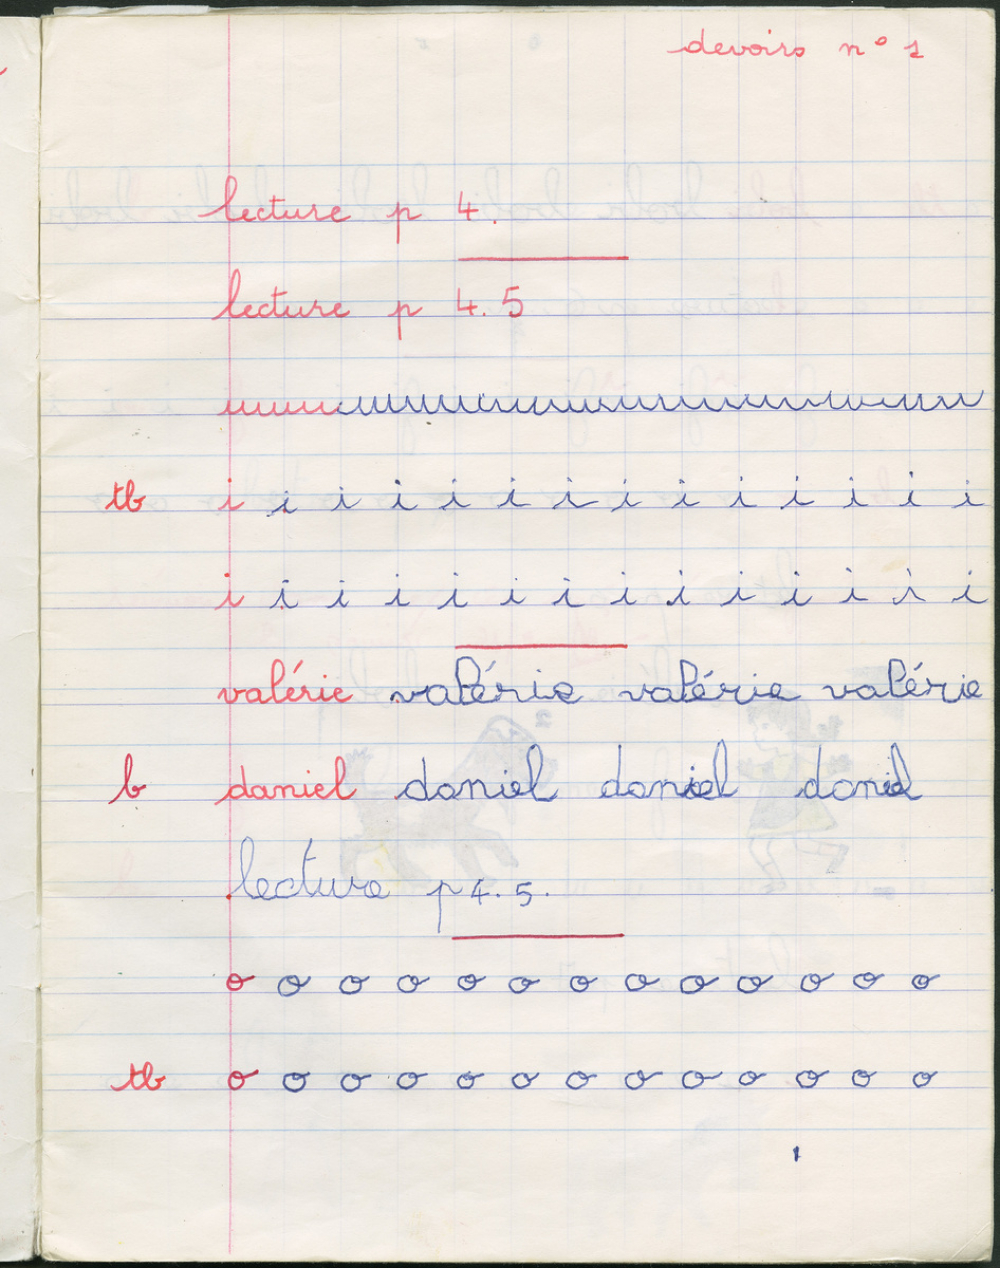 devoirs n° 1
lecture p 4.
lecture p 4.5
uuuuuuuuuuuuuuuuuuuuuuuuuuuuuu
tb i i i i i i i i i i i i i i
i i i i i i i i i i i i i i
valérie valérie valérie valérie
b daniel daniel daniel daniel
lecture p 4.5.
o o o o o o o o o o o o o
tb o o o o o o o o o o o o o